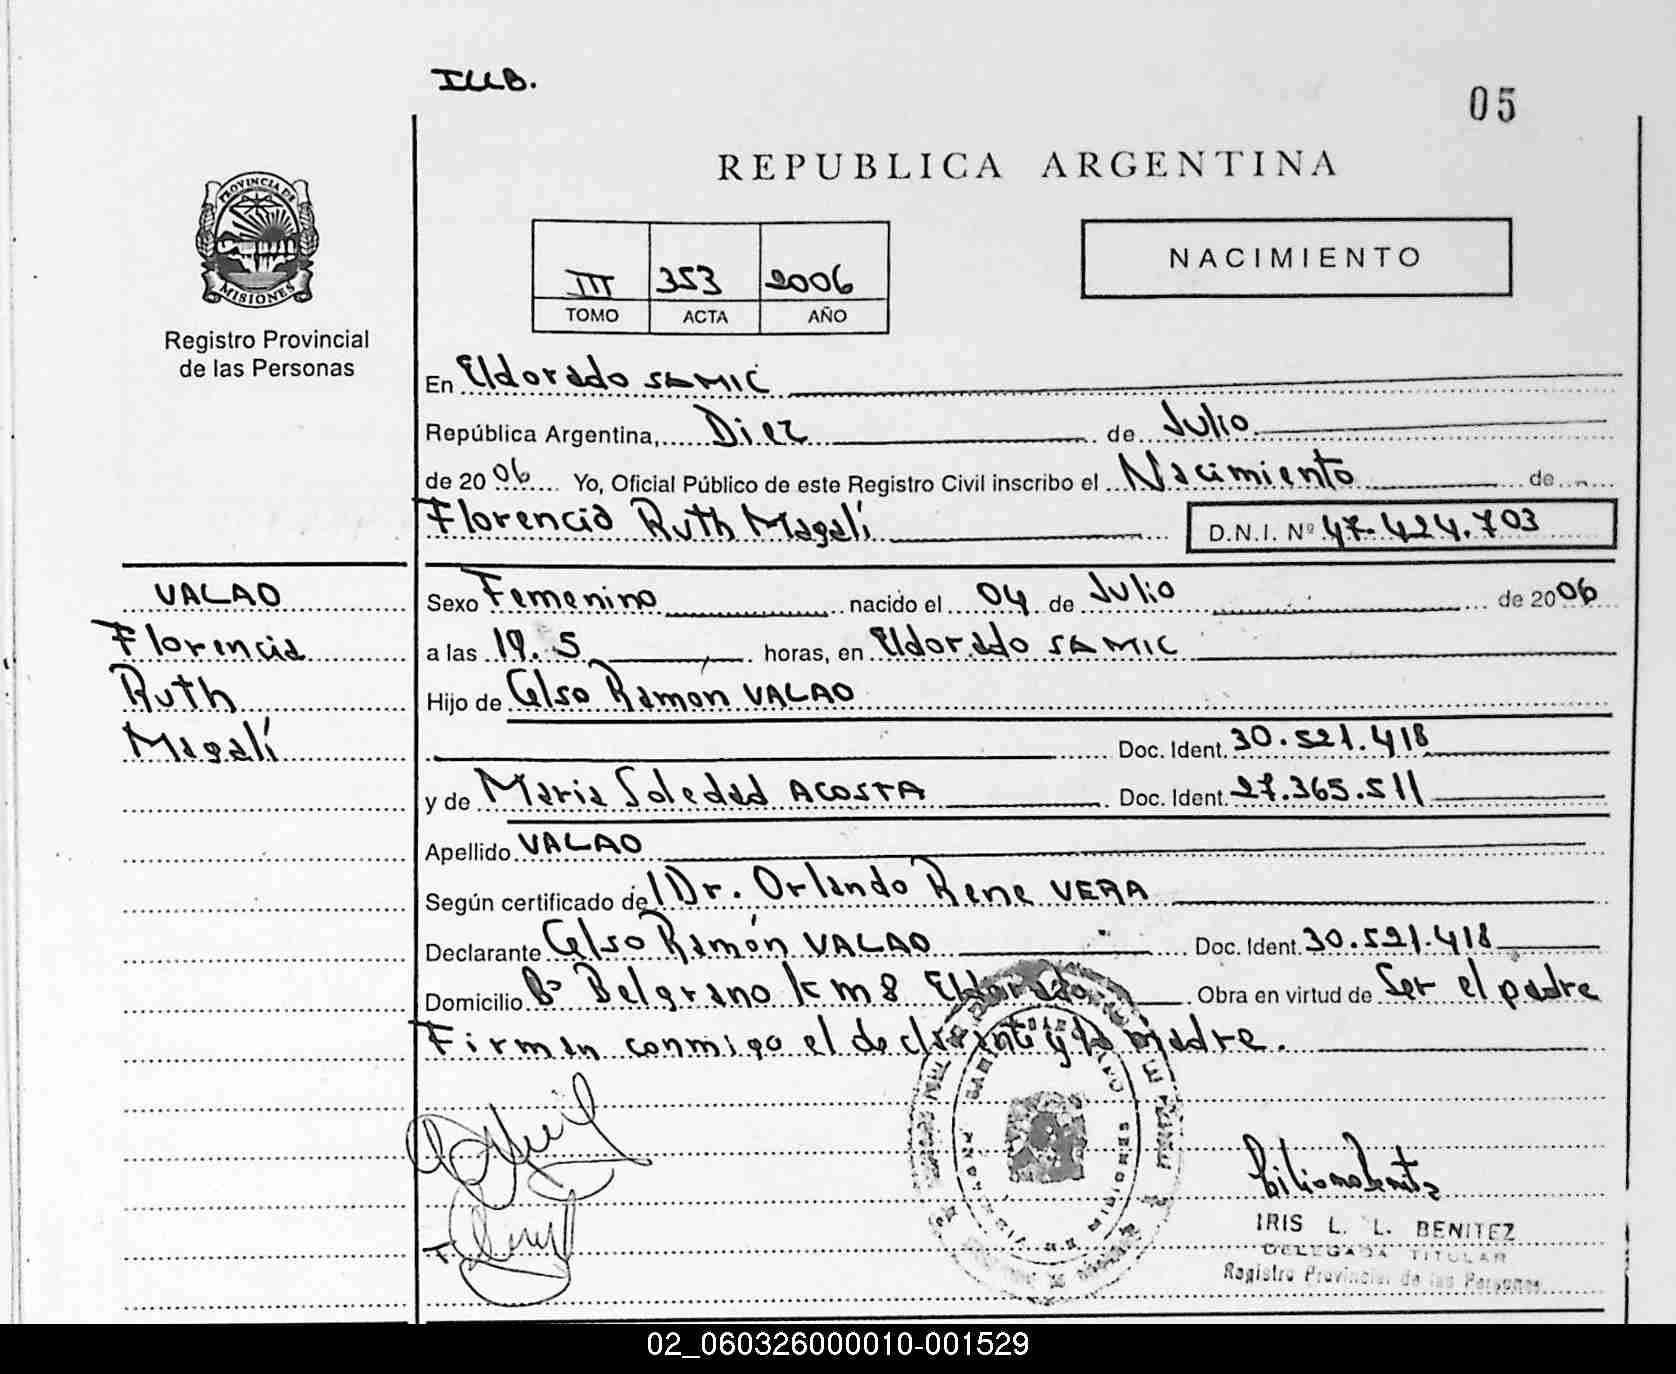 ILLB.
05
REPUBLICA ARGENTINA
PROVINCIA DE
MISIONES
Registro Provincial
de las Personas
III 353 2006
TOMO ACTA AÑO
NACIMIENTO
En Eldorado SAMIC
República Argentina, Diez de Julio
de 2006 Yo, Oficial Público de este Registro Civil inscribo el Nacimiento de
Florencia Ruth Magalí D.N.I. Nº 47.424.703
VALAO
Florencia
Ruth
Magalí
Sexo Femenino nacido el 04 de Julio de 2006
a las 19.5 horas, en Eldorado SAMIC
Hijo de Celso Ramón VALAO
Doc. Ident. 30.521.418
y de Maria Soledad ACOSTA Doc. Ident. 27.365.511
Apellido VALAO
Según certificado de l Dr. Orlando Rene VERA
Declarante Celso Ramón VALAO Doc. Ident. 30.521.418
Domicilio Bº Belgrano km 8 Eldorado Obra en virtud de Ser el padre
Firman conmigo el declarante y la madre.
IRIS L. L. BENITEZ
DELEGADA TITULAR
Registro Provincial de las Personas
02_060326000010-001529